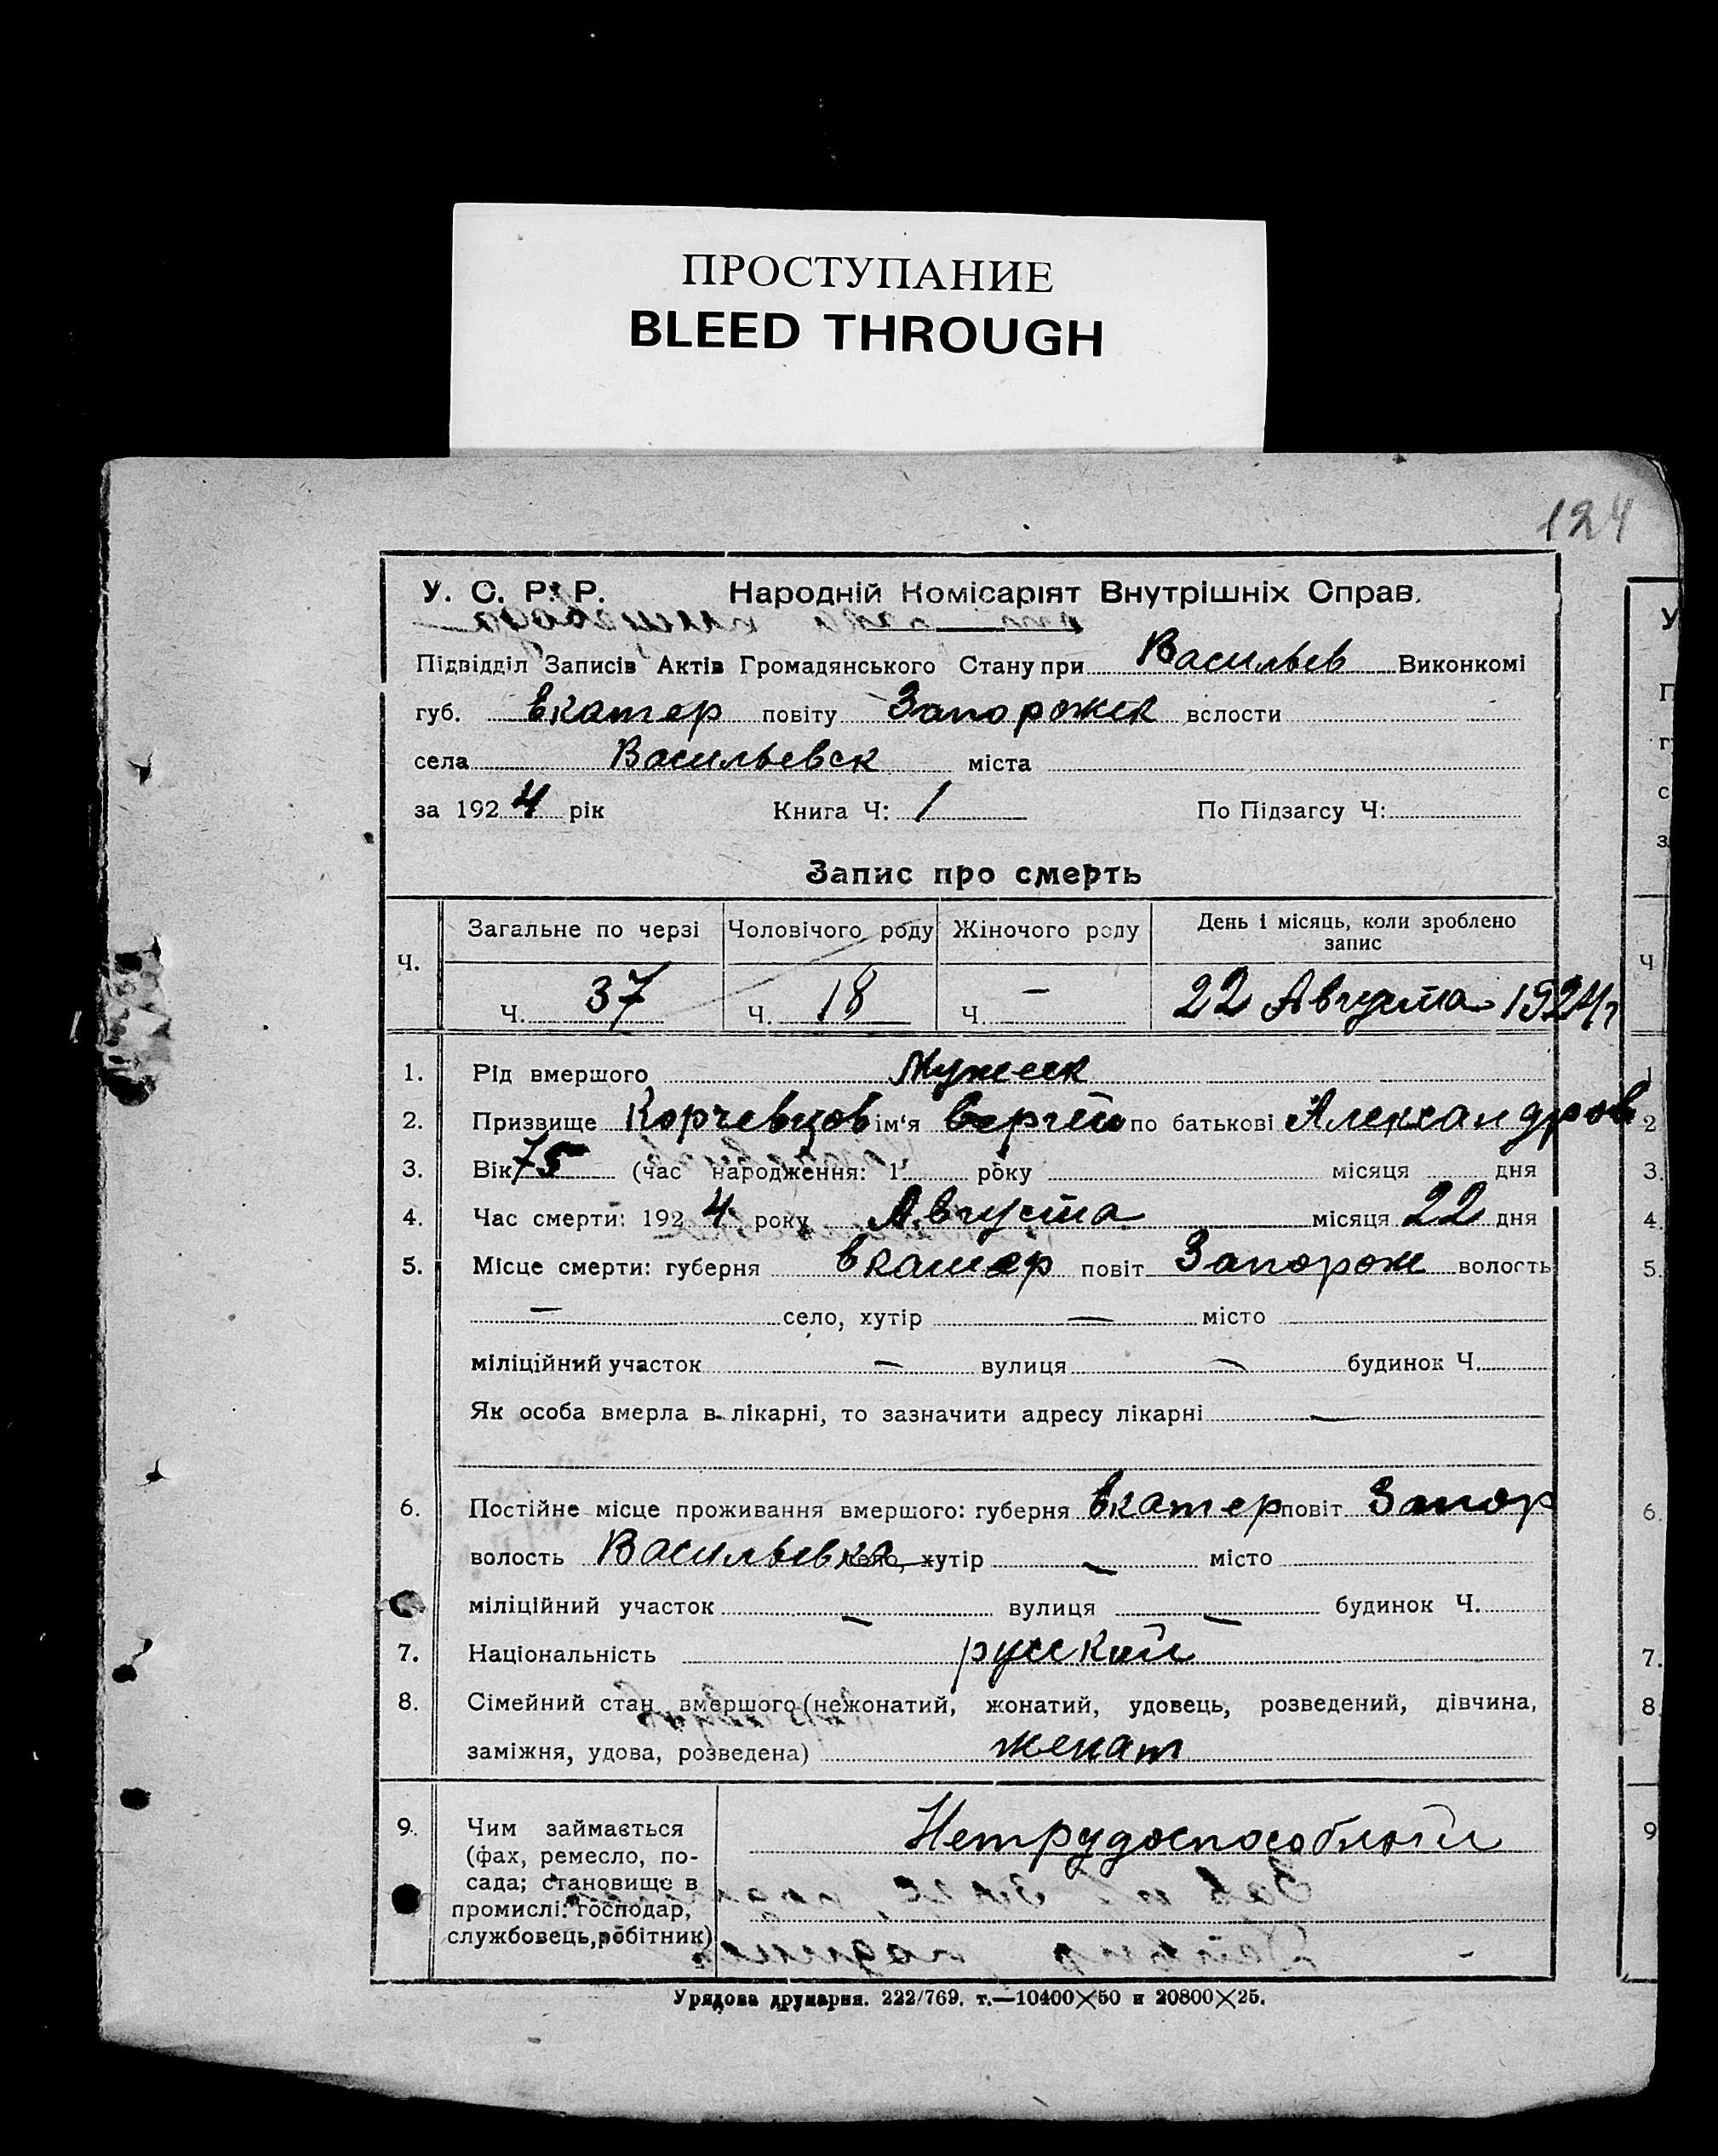 ПРОСТУПАНИЕ
BLEED THROUGH
124
У. С. Р. Р. Народній Комісаріят Внутрішніх Справ.
Підвідділ Записів Актів Громадянського Стану при Васильев Виконкомі
губ. Екатер повіту Запорожск волости
села Васильевск міста
за 1924 рік Книга Ч: 1 По Підзагсу Ч:
Запис про смерть
Ч. Загальне по черзі Чоловічого роду Жіночого роду День і місяць, коли зроблено запис
Ч. 37 Ч. 18 Ч. — 22 Августа 1924 г
1. Рід вмершого Мужеск
2. Призвище Корчевцов ім'я Сергей по батькові Александров
3. Вік 75 (час народження: 1 року місяця дня
4. Час смерти: 1924 року Августа місяця 22 дня
5. Місце смерти: губерня Екатер повіт Запорож волость
— село, хутір — місто
міліційний участок — вулиця — будинок Ч.
Як особа вмерла в лікарні, то зазначити адресу лікарні —
6. Постійне місце проживання вмершого: губерня Екатер повіт Запор
волость Васильевка село, хутір — місто
міліційний участок — вулиця — будинок Ч.
7. Національність русский
8. Сімейний стан вмершого (нежонатий, жонатий, удовець, розведений, дівчина,
заміжня, удова, розведена) женат
9. Чим займається Нетрудоспособный
(фах, ремесло, по-
сада; становище в
промислі: господар,
службовець, робітник)
Урядова друкарня. 222/769. т.—10400×50 и 20800×25.